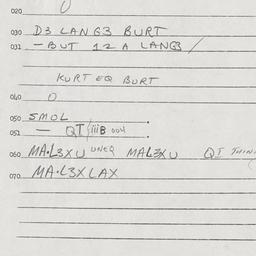 020
030 D3 LANG3 BURT
031 - BUT 12 A LANG3 /
KURT EQ BURT
040 O
050 SMOL
051 — QT/iiiB 004
060 MA•L3XU UNEQ MAL3XU QI THIN
070 MA•L3XLAX